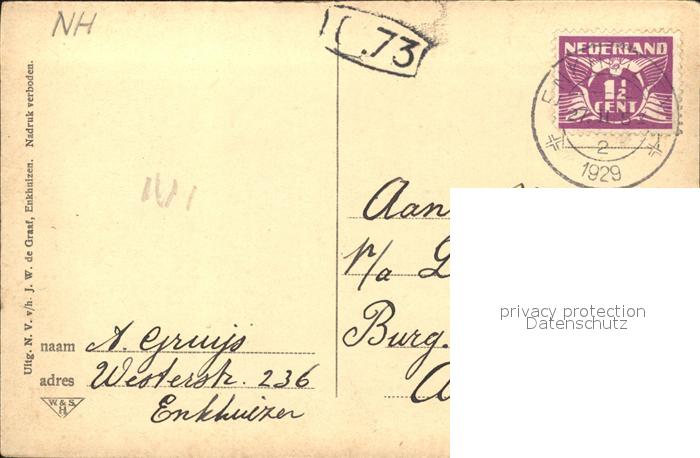 NH
.73
NEDERLAND
1½
CENT
2
1929
Uitg. N. V. v/h. J. W. de Graaf, Enkhuizen. Nadruk verboden.
Aan
p/a
Burg.
naam A. Gruijs
adres Westerstr. 236
Enkhuizen
W. & S.
H
privacy protection
Datenschutz